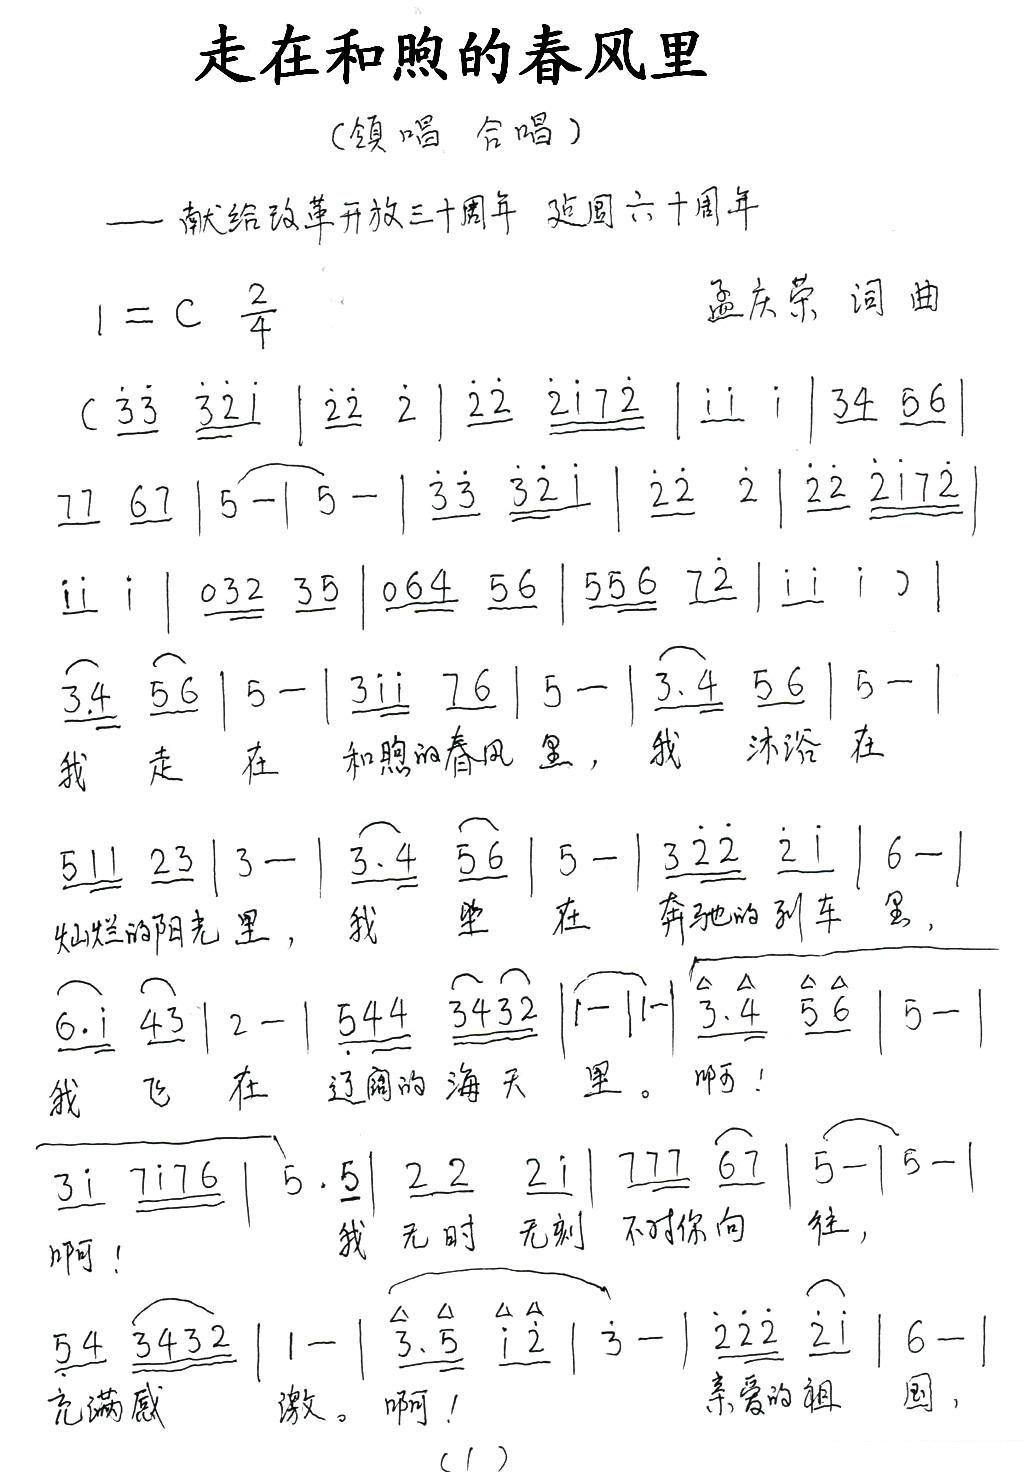 走在和煦的春风里
（领唱 合唱）
—— 献给改革开放三十周年 建国六十周年
1=C 2/4
孟庆荣 词曲
(3̇3̇ 3̇2̇i | 2̇2̇ 2̇ | 2̇2̇ 2̇i72̇ | ii i | 34 56 |
77 67 | 5 — | 5 — | 3̇3̇ 3̇2̇i | 2̇2̇ 2̇ | 2̇2̇ 2̇i72̇ |
ii i | 032 35 | 064 56 | 556 72̇ | ii i ) |
3.4 56 | 5 — | 3ii 76 | 5 — | 3.4 56 | 5 — |
我 走 在 和煦的春风 里， 我 沐浴 在
511 23 | 3 — | 3.4 56 | 5 — | 32̇2̇ 2̇i | 6 — |
灿烂的阳光 里， 我 坐 在 奔驰的列车 里，
6.i 43 | 2 — | 5̣44 3432 | 1 — | 1 — | 3.4 56 | 5 — |
我 飞 在 辽阔的海天 里。 啊！
3i 7i76 | 5.5 | 22 2i | 777 67 | 5 — | 5 — |
啊！ 我 无时 无刻 不对你向 往，
5̣4 3432 | 1 — | 3.5 i2̇ | 3̇ — | 2̇2̇2̇ 2̇i | 6 — |
充满感 激。 啊！ 亲爱的祖 国，
(1)